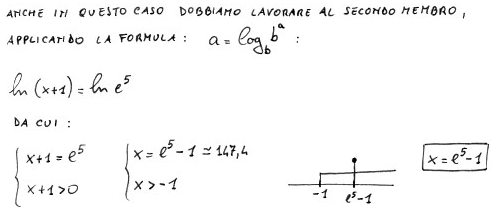 ANCHE IN QUESTO CASO DOBBIAMO LAVORARE AL SECONDO MEMBRO,
APPLICANDO LA FORMULA: a = log_b b^a :
ln (x+1) = ln e^5
DA CUI:
{ x+1 = e^5 { x = e^5 - 1 ≃ 147,4
{ x+1 > 0 { x > -1
-1 e^5-1
x = e^5-1